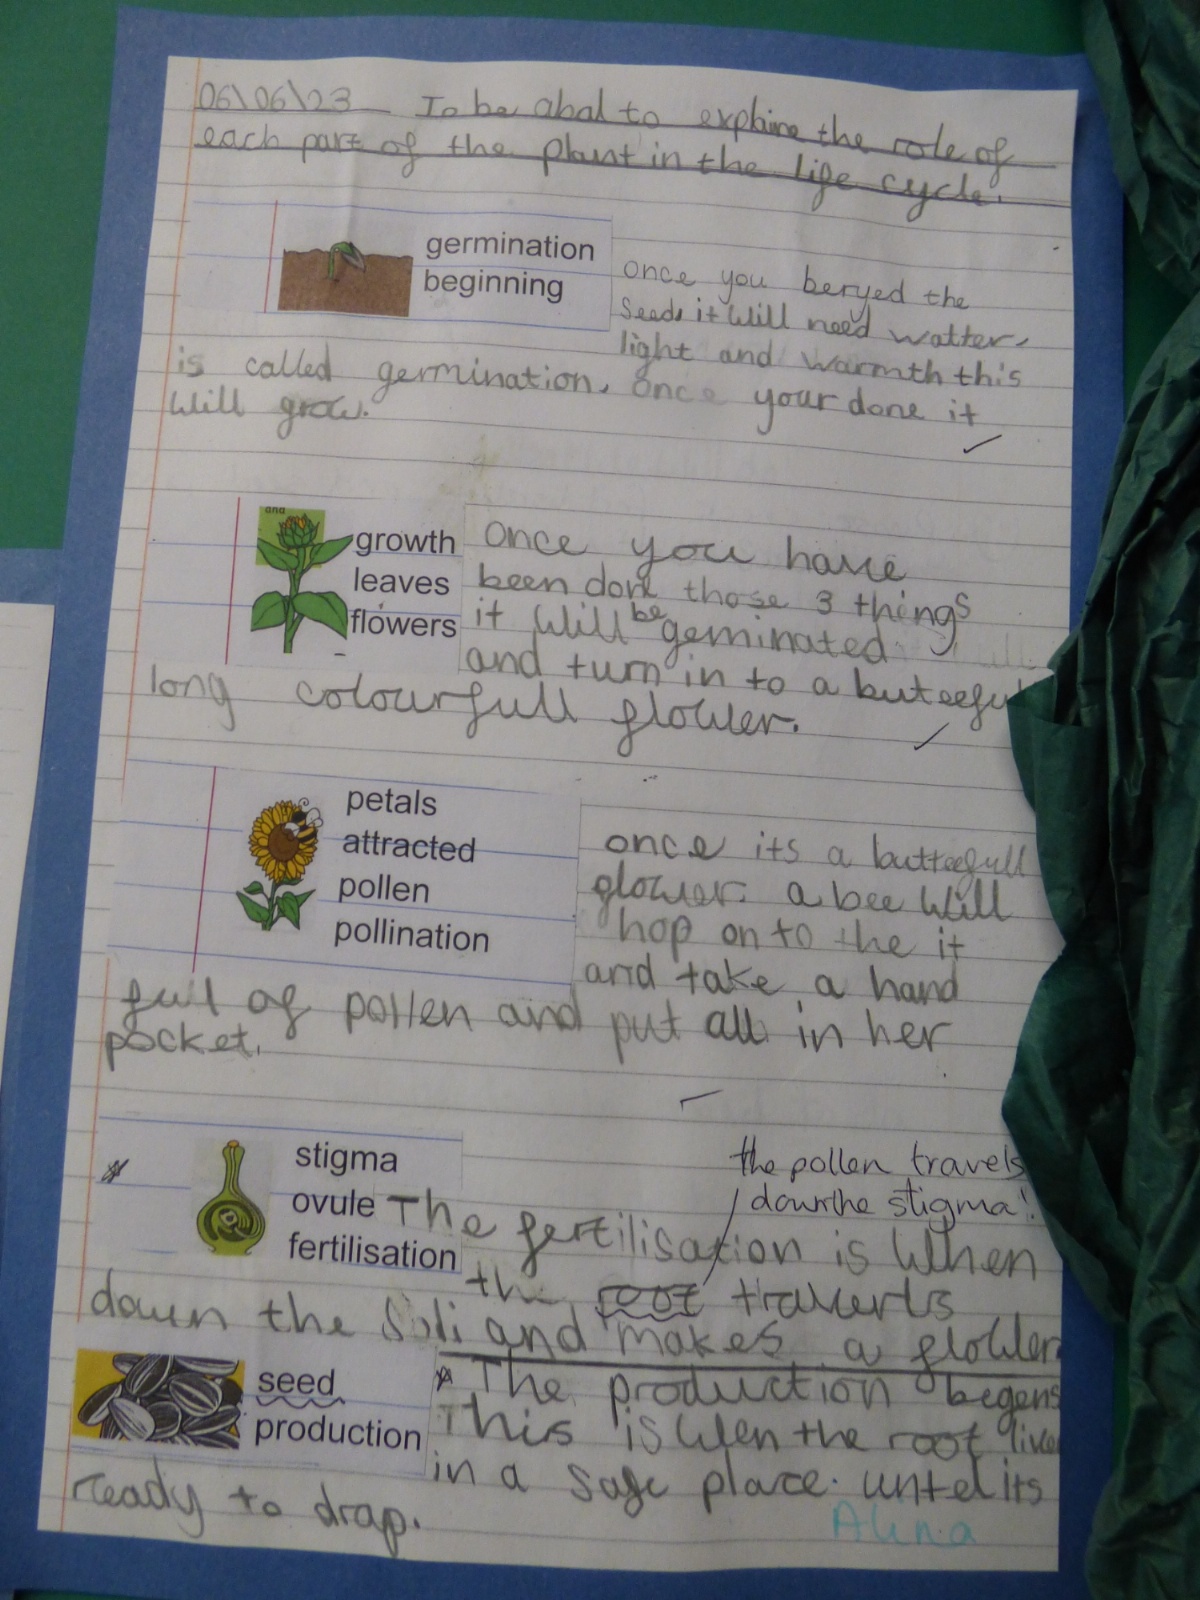 06\06\23 To be abal to explaine the role of
each part of the plant in the life cycle.
germination
beginning
once you beryed the
seeds it will need watter,
light and warmth this
is called germination. once your done it
will grow.
and
growth
leaves
flowers
Once you have
been done those 3 things
it will be geminated
and turn in to a
long colourfull flower.
petals
attracted
pollen
pollination
once its a butteefull
flower. a bee will
hop on to the it
and take a hand
full of pollen and put all in her
pocket.
stigma
ovule
fertilisation
the pollen travels
down the stigma!
The fertilisation is when
the root traverls
down the Soli and makes a flower
seed
production
The production begens
This is wen the root live
in a safe place. untel its
ready to drap.
Alina